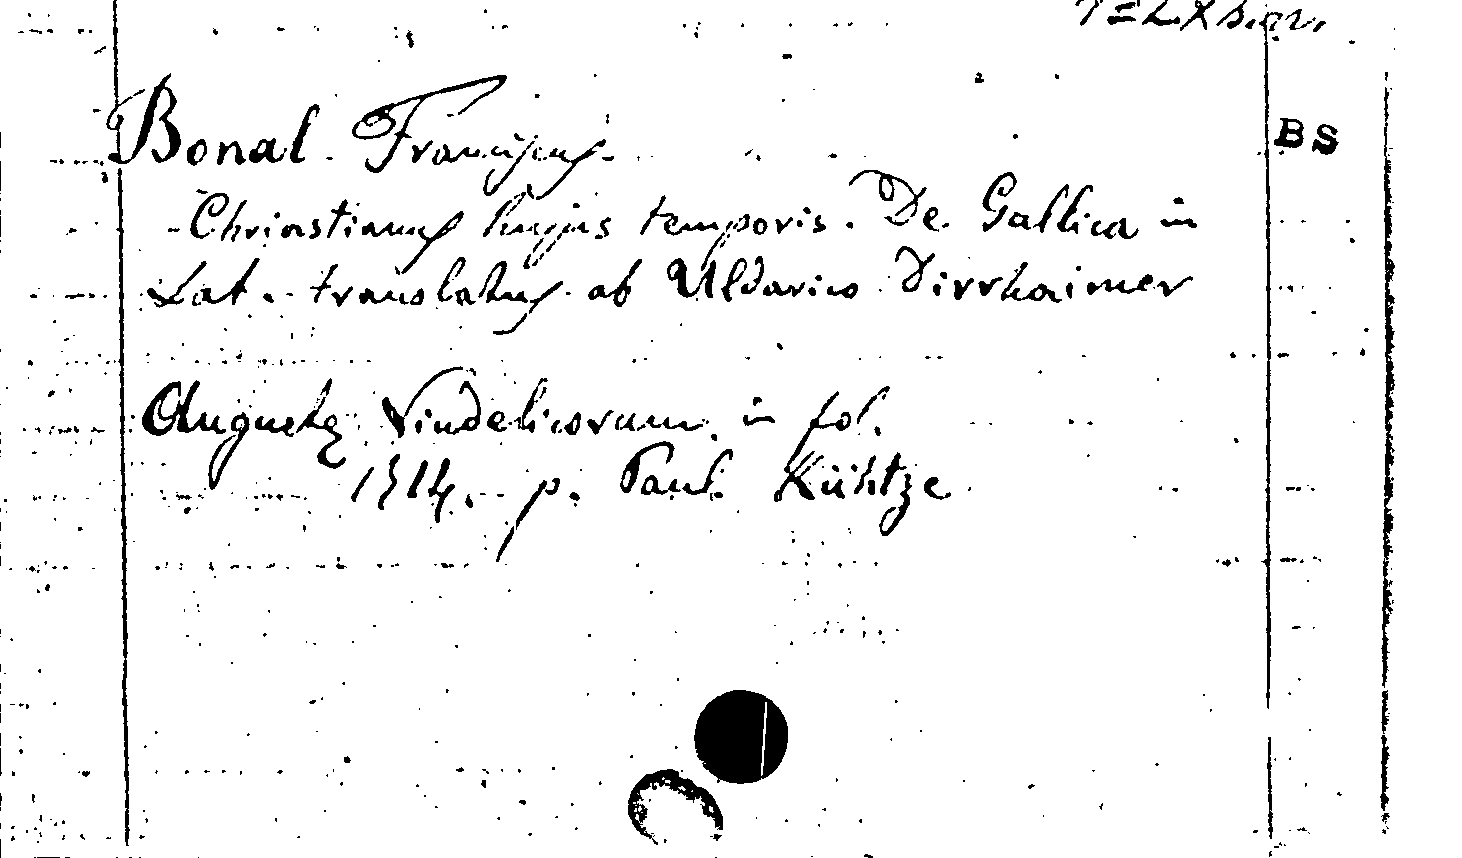 BS
Bonal Franciscus.
Chriastianus hujus temporis. De Gallica in
Lat. translatus ab Uldarico Dirrhaimer
Augustae Vindelicorum. in fol.
p. Paul. Kühtze